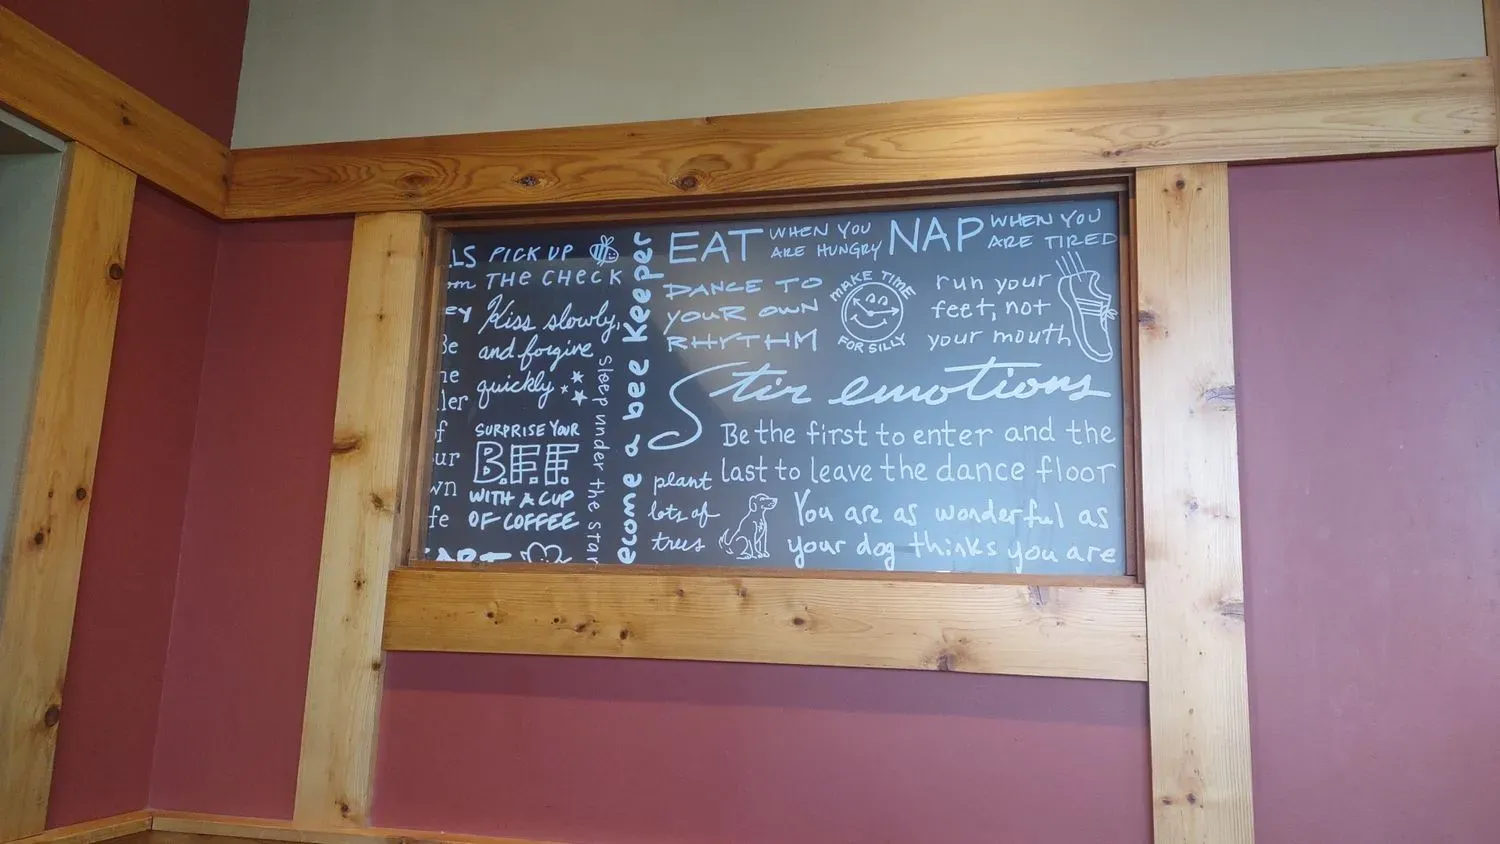 LS
om
ey
Be
he
ler
of
ur
wn
fe
PICK UP
THE CHECK
Kiss slowly,
and forgive
quickly
SURPRISE YOUR
B.F.F.
WITH A CUP
OF COFFEE
Sleep under the star
ecome a bee keeper
EAT WHEN YOU
ARE HUNGRY
NAP WHEN YOU
ARE TIRED
DANCE TO
YOUR OWN
RHYTHM
MAKE TIME
FOR SILLY
run your
feet, not
your mouth
Stir emotions
Be the first to enter and the
last to leave the dance floor
plant
lots of
trees
You are as wonderful as
your dog thinks you are